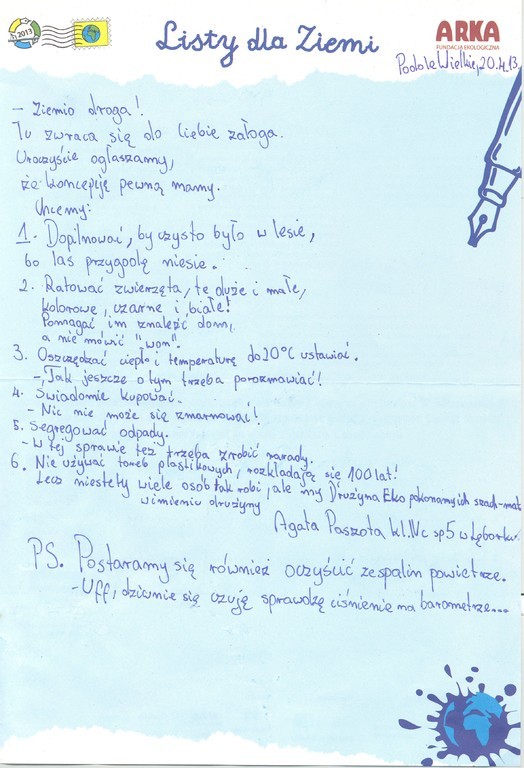 2013
Listy dla Ziemi
ARKA
FUNDACJA EKOLOGICZNA
Podole Wielkie, 20.4.13
- Ziemio droga!
Tu zwraca się do Ciebie załoga.
Uroczyście ogłaszamy,
że koncepcję pewną mamy.
Chcemy:
1. Dopilnować, by czysto było w lesie,
bo las przygodę niesie.
2. Ratować zwierzęta, te duże i małe,
kolorowe, czarne i białe!
Pomagać im znaleźć dom,
a nie mówić "won".
3. Oszczędzać ciepło i temperaturę do 20°C ustawiać.
- Tak jeszcze o tym trzeba porozmawiać!
4. Świadomie kupować.
- Nic nie może się zmarnować!
5. Segregować odpady.
- W tej sprawie też trzeba zrobić narady.
6. Nie używać toreb plastikowych, rozkładają się 100 lat!
Lecz niestety wiele osób tak robi, ale my Drużyna Eko pokonamy ich szach-mat
w imieniu drużyny
Agata Paszota kl. IVc sp5 w Lęborku
PS. Postaramy się również oczyścić ze spalin powietrze.
- Uff, dziwnie się czuję sprawdzę ciśnienie na barometrze...